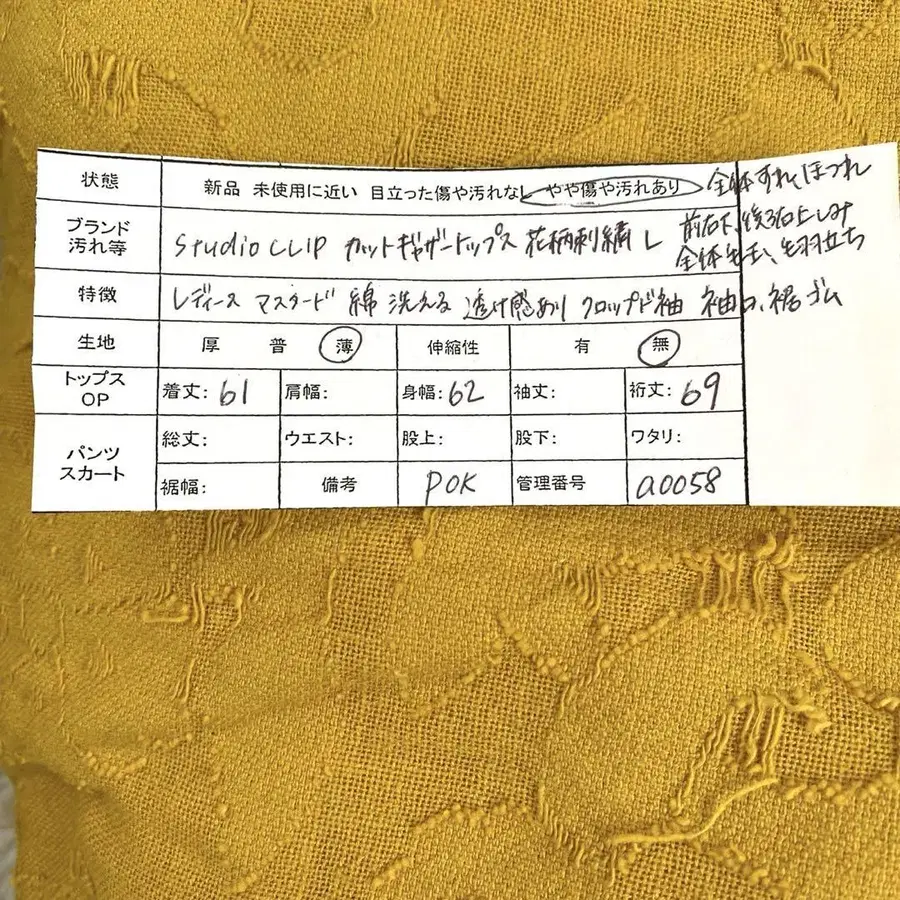 状態 新品 未使用に近い 目立った傷や汚れなし やや傷や汚れあり 全体すれ、ほつれ
ブランド 汚れ等 studio CLIP カットギャザートップス 花柄刺繍 L 前右下、後ろ右上しみ
全体 毛羽立ち
特徴 レディース マスタード 綿 洗える 透け感あり クロップド袖 袖口、裾ゴム
生地 厚 普 薄 伸縮性 有 無
トップス OP 着丈: 61 肩幅: 身幅: 62 袖丈: 裄丈: 69
パンツ スカート 総丈: ウエスト: 股上: 股下: ワタリ:
裾幅: 備考 POK 管理番号 a0058